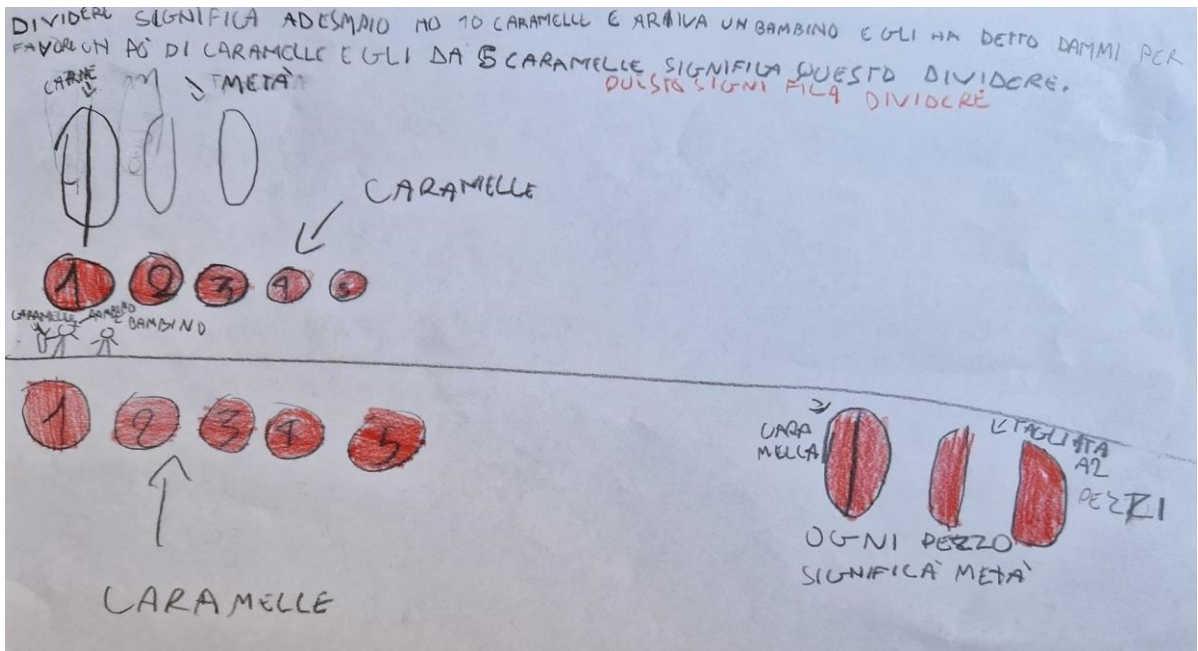 DIVIDERE SIGNIFICA ADESMPIO HO 10 CARAMELLE E ARRIVA UN BAMBINO E GLI HA DETTO DAMMI PER
FAVORE UN PÒ DI CARAMELLE E GLI DA 5 CARAMELLE SIGNIFICA QUESTO DIVIDERE.
QUESTO SIGNI FICA DIVIDERE
CARNE
METÀ
CARAMELLE
1 2 3 4 5
CARAMELLE BAMBINO
BAMBINO
1 2 3 4 5
CARAMELLE
CARA
MELLA
TAGLIATA
A2
PEZZI
OGNI PEZZO
SIGNIFICA METÀ